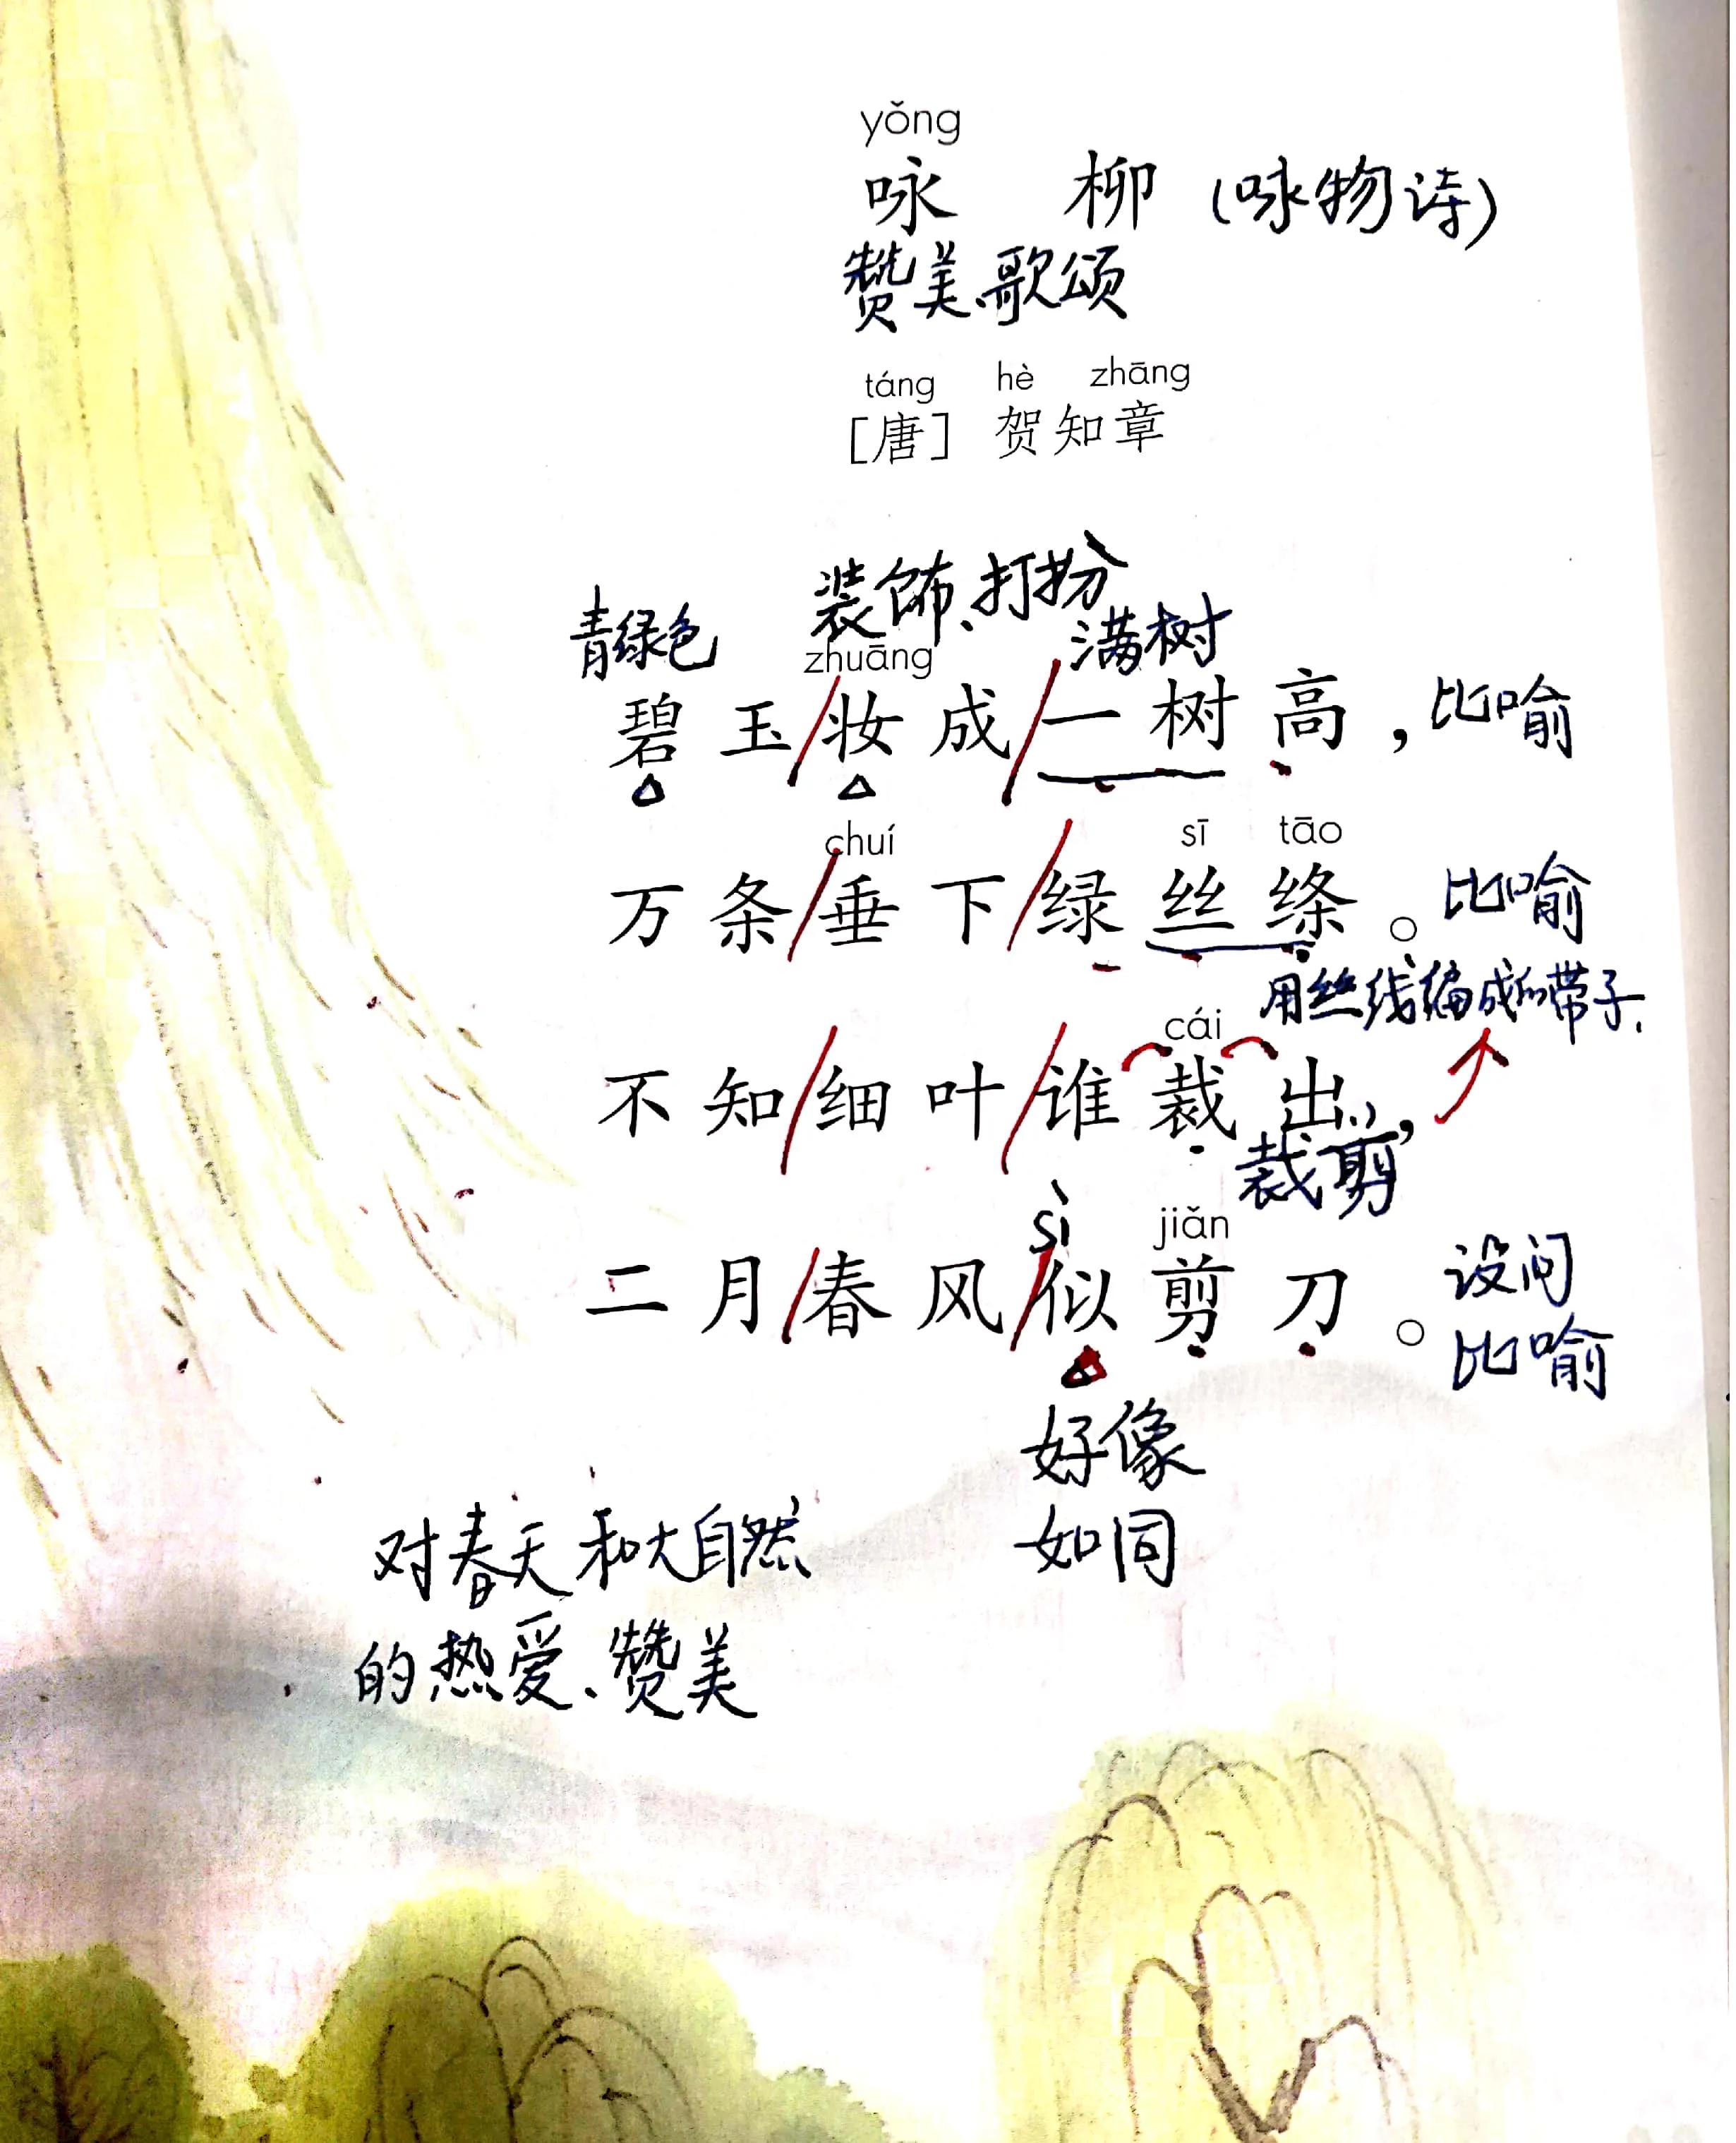 yǒng
咏 柳 (咏物诗)
赞美、歌颂
táng hè zhāng
[唐] 贺知章
装饰、打扮
青绿色 满树
zhuāng
碧玉/妆成/一树高，比喻
chuí sī tāo
万条/垂下/绿丝绦。比喻
用丝线编成的带子.
cái
不知/细叶/谁裁出，
裁剪
sì jiǎn
二月/春风/似剪刀。设问
比喻
好像
如同
对春天和大自然
的热爱、赞美